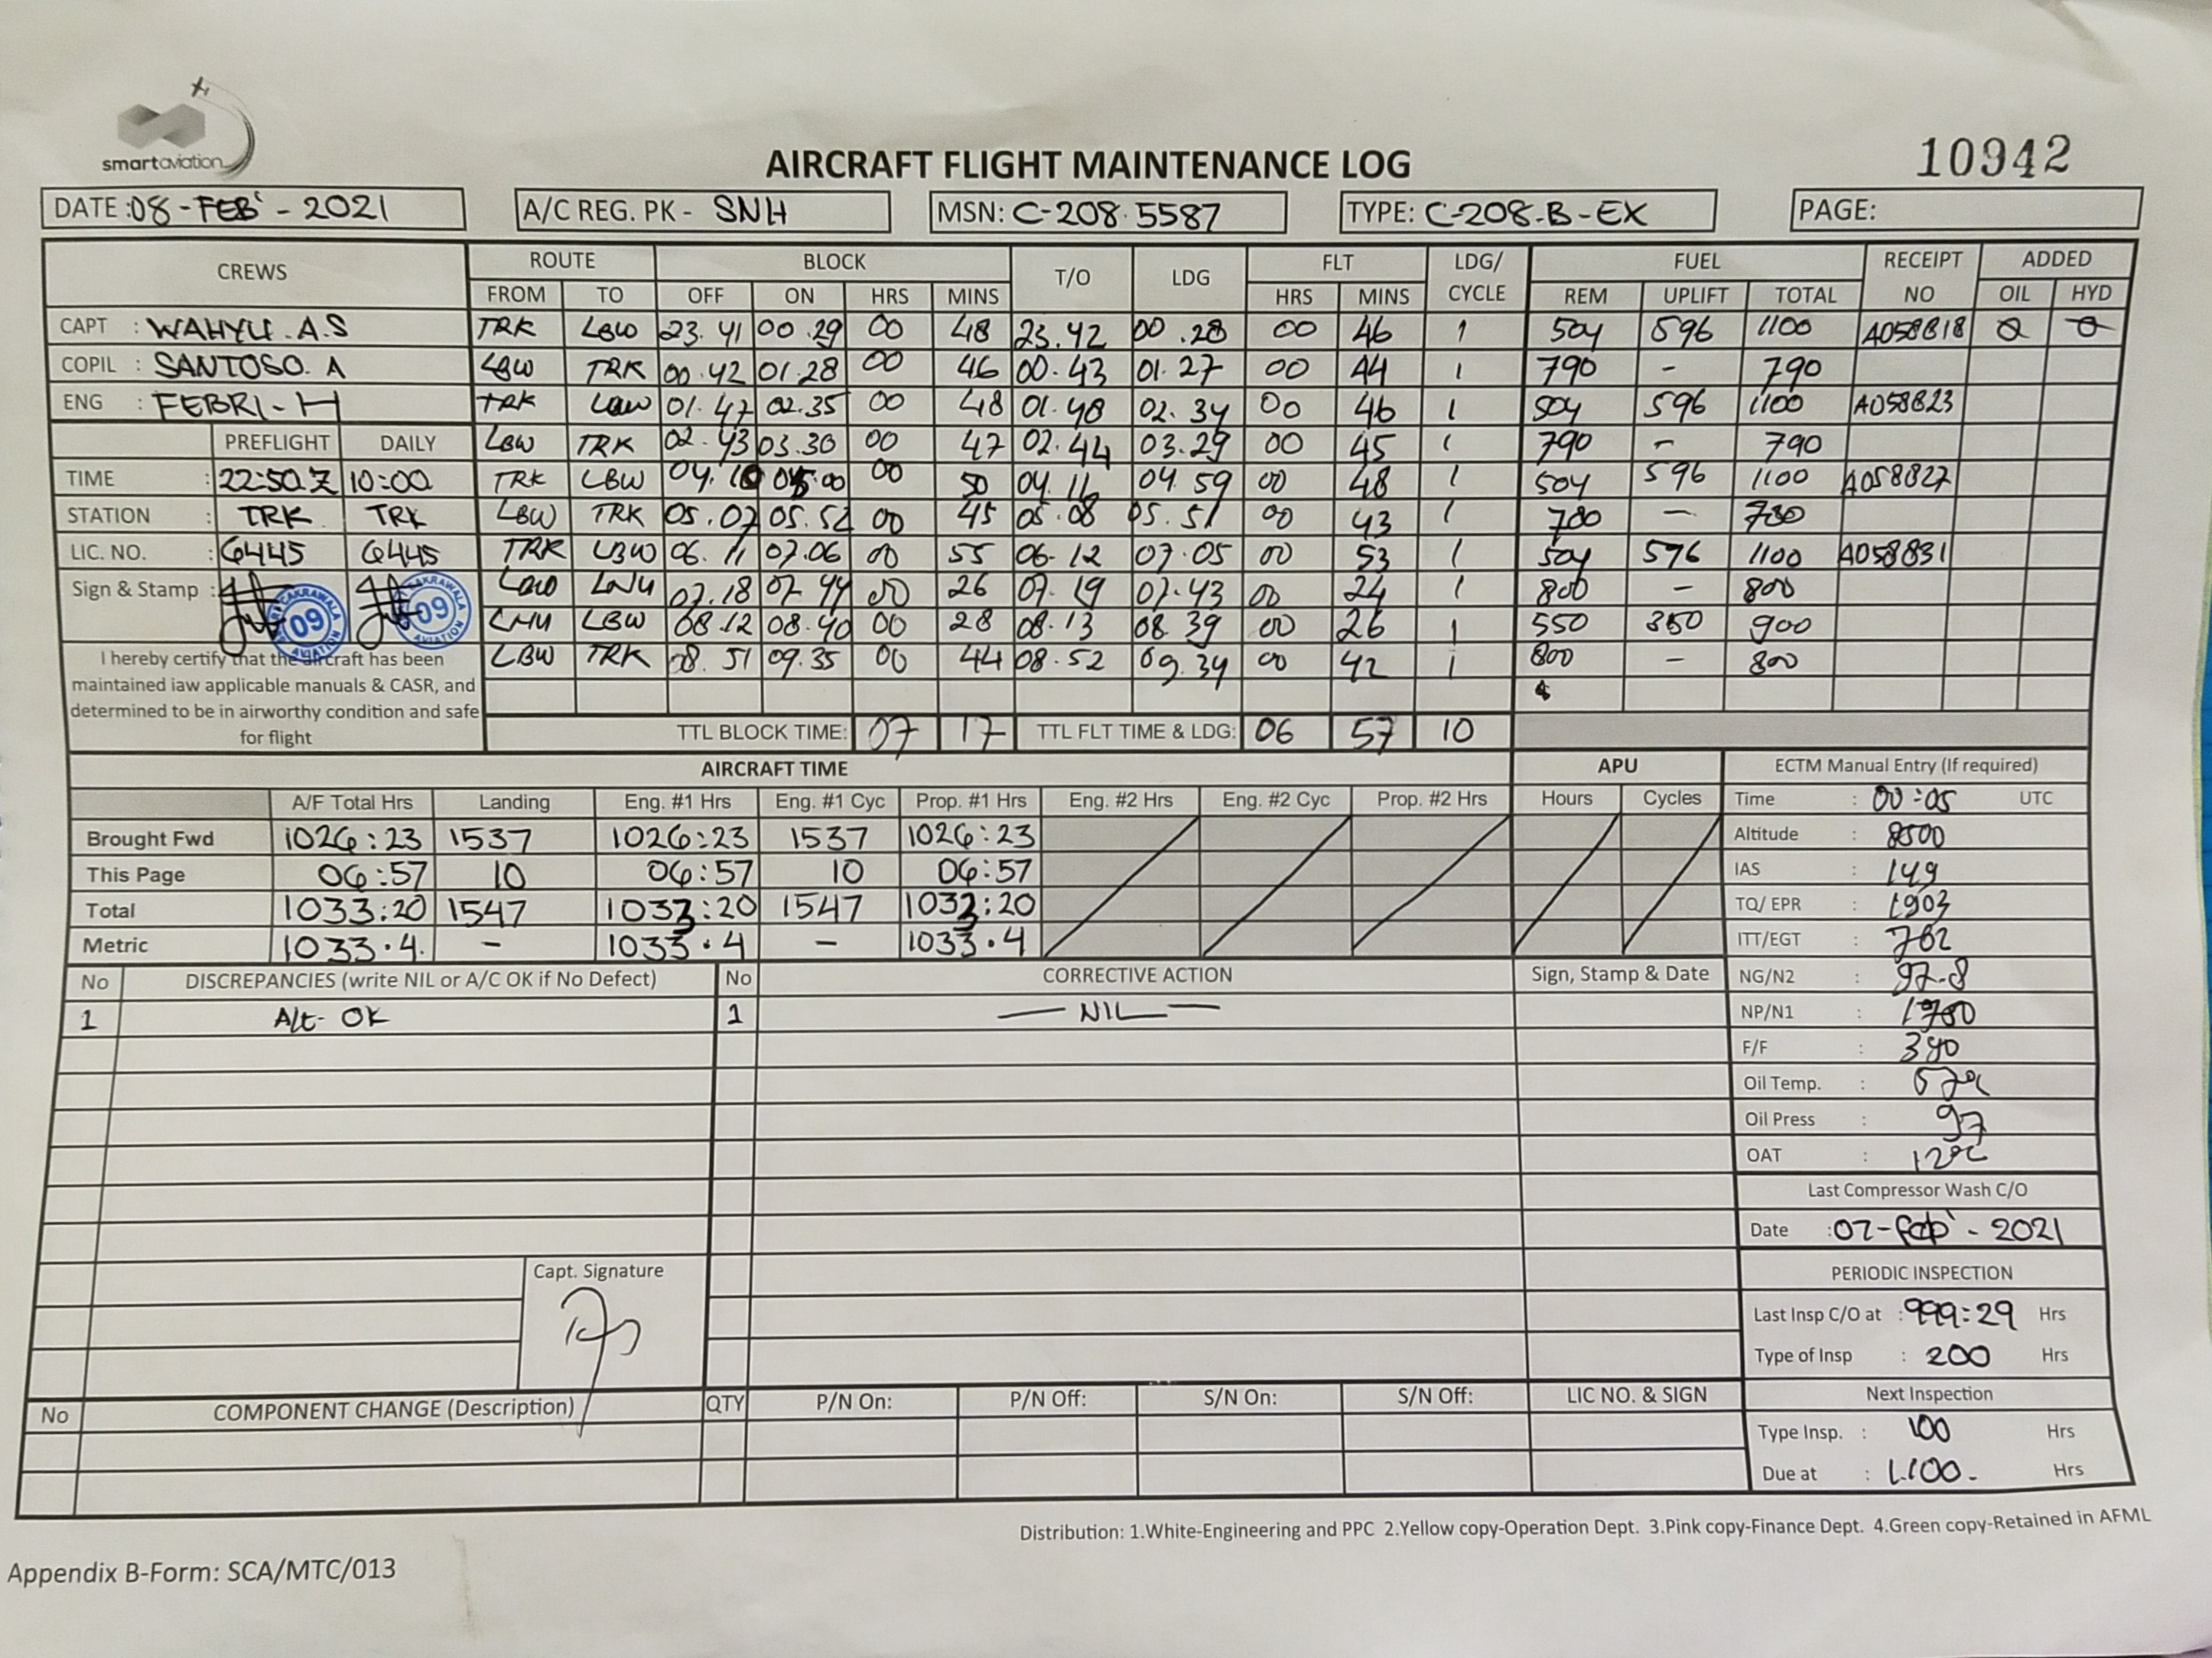 smartaviation
AIRCRAFT FLIGHT MAINTENANCE LOG
10942
DATE :08-FEB'-2021 A/C REG. PK- SNH MSN: C-208.5587 TYPE: C-208.B-EX PAGE:
CREWS ROUTE BLOCK T/O LDG FLT LDG/ CYCLE FUEL RECEIPT NO ADDED
FROM TO OFF ON HRS MINS HRS MINS REM UPLIFT TOTAL OIL HYD
CAPT : WAHYU.A.S TRK LBW 23.41 00.29 00 48 23.42 00.28 00 46 1 504 596 1100 A058818
COPIL : SANTOSO. A LBW TRK 00.42 01.28 00 46 00.43 01.27 00 44 1 790 - 790
ENG : FEBRI-H TRK LBW 01.47 02.35 00 48 01.48 02.34 00 46 1 504 596 1100 A058823
PREFLIGHT DAILY LBW TRK 02.43 03.30 00 47 02.44 03.29 00 45 1 790 - 790
TIME : 22:50.Z 10:00 TRK LBW 04.10 05.00 00 50 04.11 04.59 00 48 1 504 596 1100 A058827
STATION : TRK TRK LBW TRK 05.07 05.52 00 45 05.08 05.51 00 43 1 780 - 780
LIC. NO. : 6445 6445 TRK LBW 06.11 07.06 00 55 06.12 07.05 00 53 1 504 596 1100 A058831
Sign & Stamp : 09 09 LBW LNU 07.18 07.44 00 26 07.19 07.43 00 24 1 800 - 800
LNU LBW 08.12 08.40 00 28 08.13 08.39 00 26 1 550 350 900
LBW TRK 08.51 09.35 00 44 08.52 09.34 00 42 1 800 - 800
I hereby certify that the aircraft has been
maintained iaw applicable manuals & CASR, and
determined to be in airworthy condition and safe
for flight
TTL BLOCK TIME: 07 17 TTL FLT TIME & LDG: 06 57 10
AIRCRAFT TIME APU ECTM Manual Entry (If required)
A/F Total Hrs Landing Eng. #1 Hrs Eng. #1 Cyc Prop. #1 Hrs Eng. #2 Hrs Eng. #2 Cyc Prop. #2 Hrs Hours Cycles Time : 00:05 UTC
Brought Fwd 1026:23 1537 1026:23 1537 1026:23 Altitude : 8500
This Page 06:57 10 06:57 10 06:57 IAS : 149
Total 1033:20 1547 1033:20 1547 1033:20 TQ/ EPR : 1903
Metric 1033.4. - 1033.4 - 1033.4 ITT/EGT : 762
No DISCREPANCIES (write NIL or A/C OK if No Defect) No CORRECTIVE ACTION Sign, Stamp & Date NG/N2 : 97.8
1 OK 1 — NIL — NP/N1 :
F/F :
Oil Temp. :
Oil Press : 97
OAT : 12°C
Last Compressor Wash C/O
Date :07-feb'-2021
Capt. Signature
PERIODIC INSPECTION
Last Insp C/O at : 999:29 Hrs
Type of Insp : 200 Hrs
No COMPONENT CHANGE (Description) QTY P/N On: P/N Off: S/N On: S/N Off: LIC NO. & SIGN Next Inspection
Type Insp. : 100 Hrs
Due at : 1.100.- Hrs
Distribution: 1.White-Engineering and PPC 2.Yellow copy-Operation Dept. 3.Pink copy-Finance Dept. 4.Green copy-Retained in AFML
Appendix B-Form: SCA/MTC/013